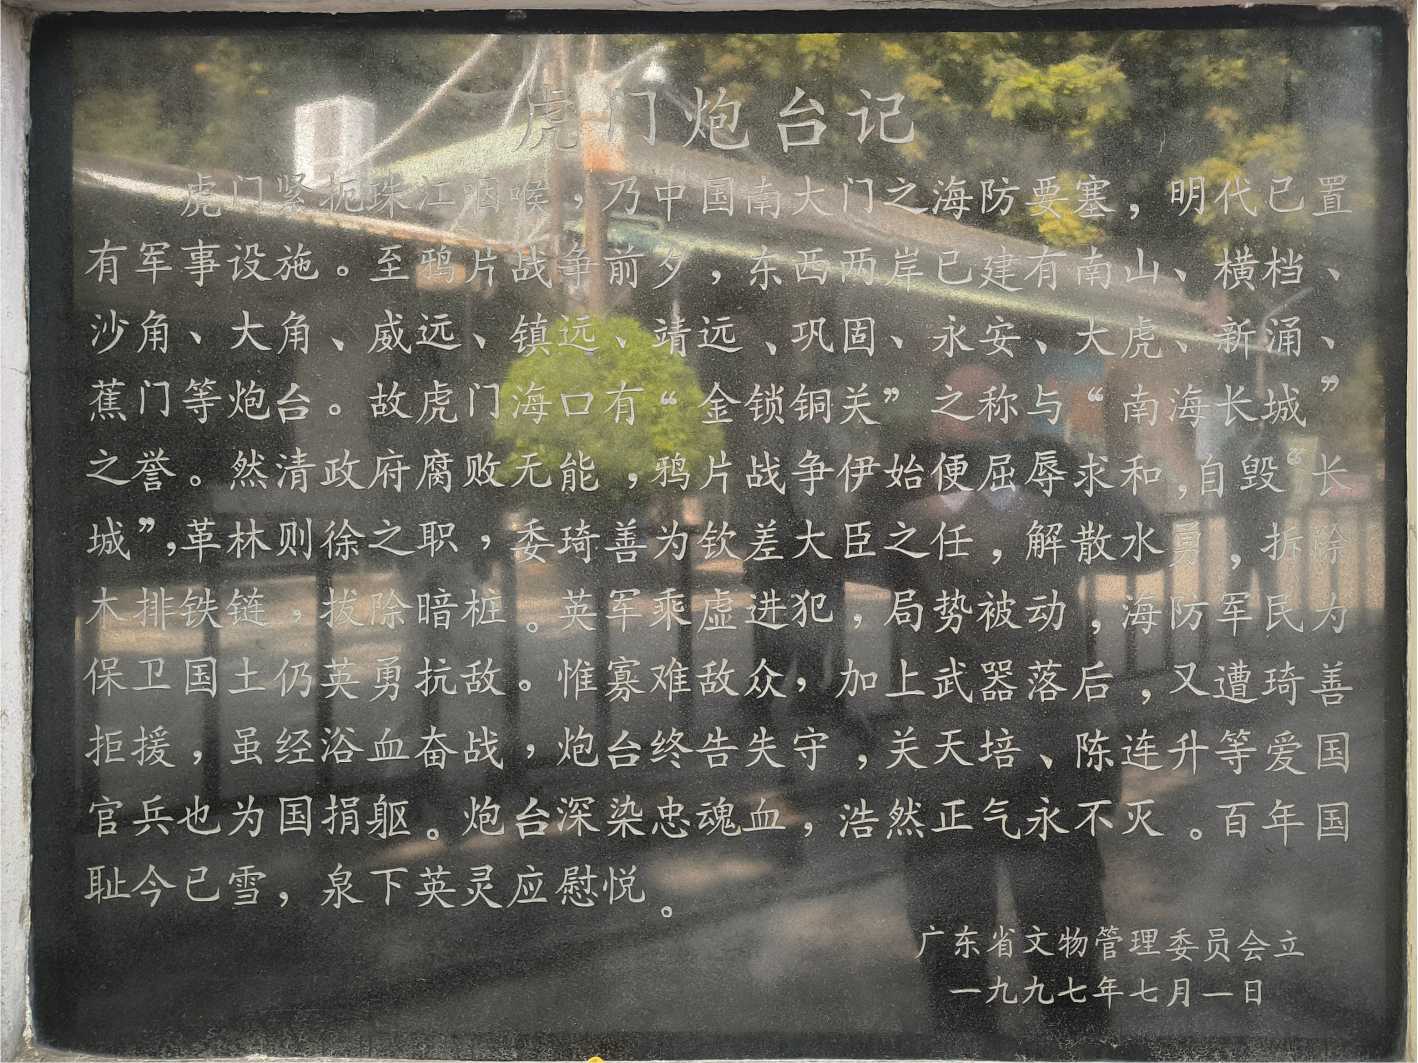 虎门炮台记
虎门紧扼珠江咽喉，乃中国南大门之海防要塞，明代已置
有军事设施。至鸦片战争前夕，东西两岸已建有南山、横档、
沙角、大角、威远、镇远、靖远、巩固、永安、大虎、新涌、
蕉门等炮台。故虎门海口有“金锁铜关”之称与“南海长城”
之誉。然清政府腐败无能，鸦片战争伊始便屈辱求和，自毁“长
城”，革林则徐之职，委琦善为钦差大臣之任，解散水勇，拆除
木排铁链，拔除暗桩。英军乘虚进犯，局势被动，海防军民为
保卫国土仍英勇抗敌。惟寡难敌众，加上武器落后，又遭琦善
拒援，虽经浴血奋战，炮台终告失守，关天培、陈连升等爱国
官兵也为国捐躯。炮台深染忠魂血，浩然正气永不灭。百年国
耻今已雪，泉下英灵应慰悦。
广东省文物管理委员会立
一九九七年七月一日